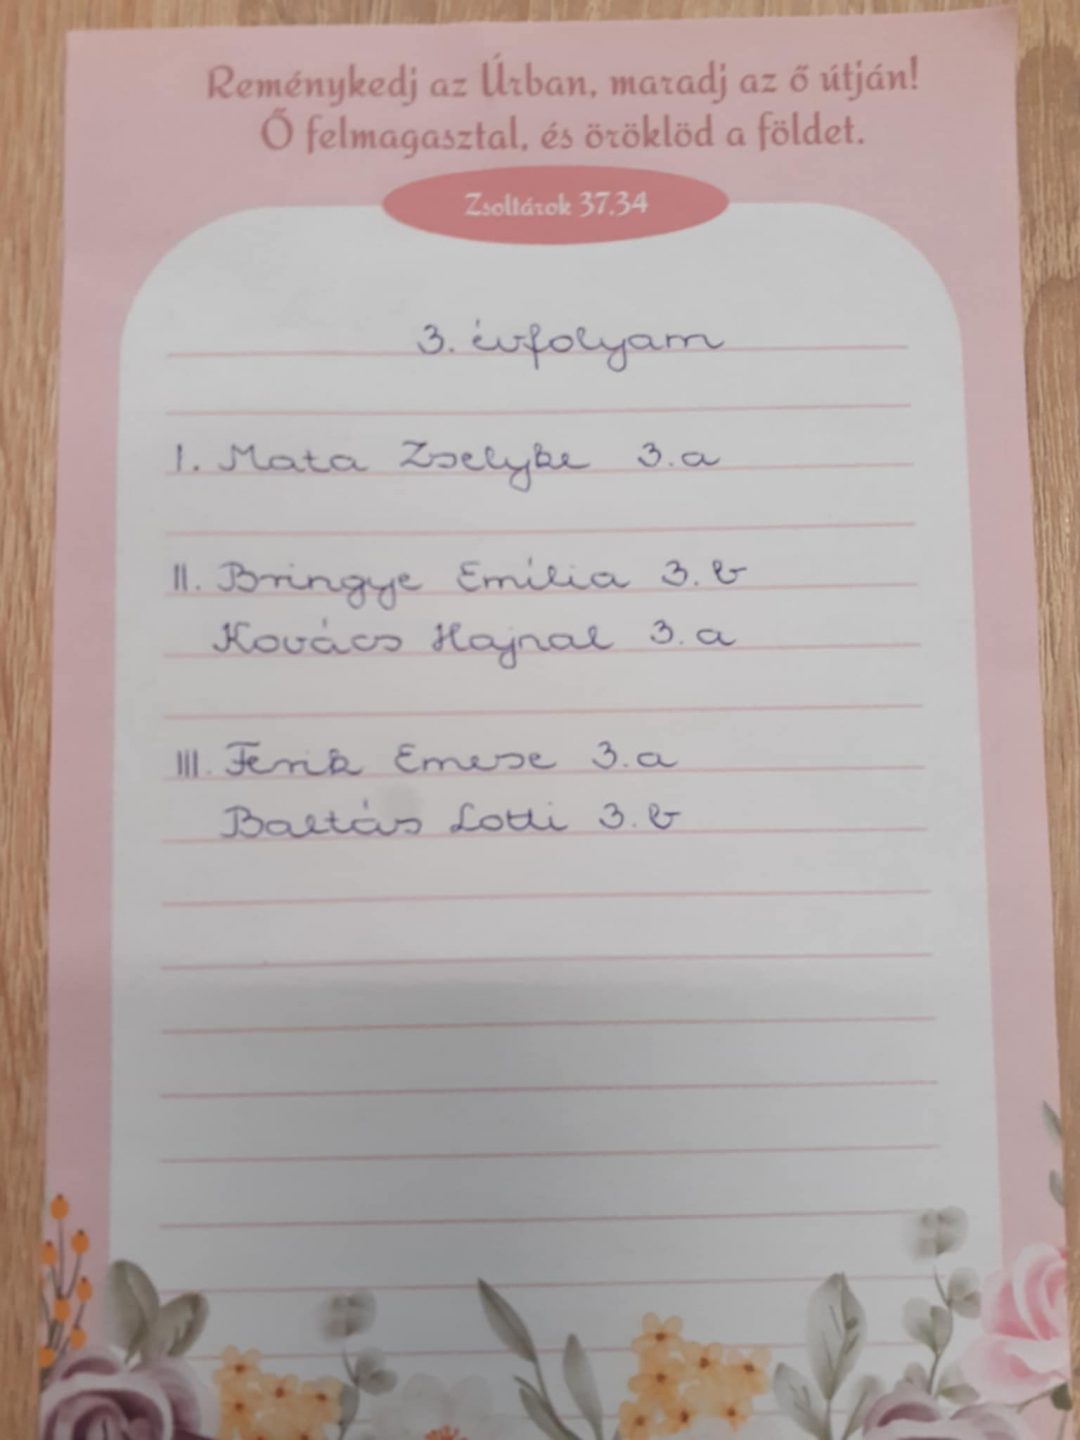 Reménykedj az Úrban, maradj az ő útján!
Ő felmagasztal, és öröklöd a földet.
Zsoltárok 37.34
3. évfolyam
I. Mata Zselyke 3.a
II. Bringye Emília 3. b
Kovács Hajnal 3. a
III. Fenik Emese 3. a
Baltás Lotti 3. b